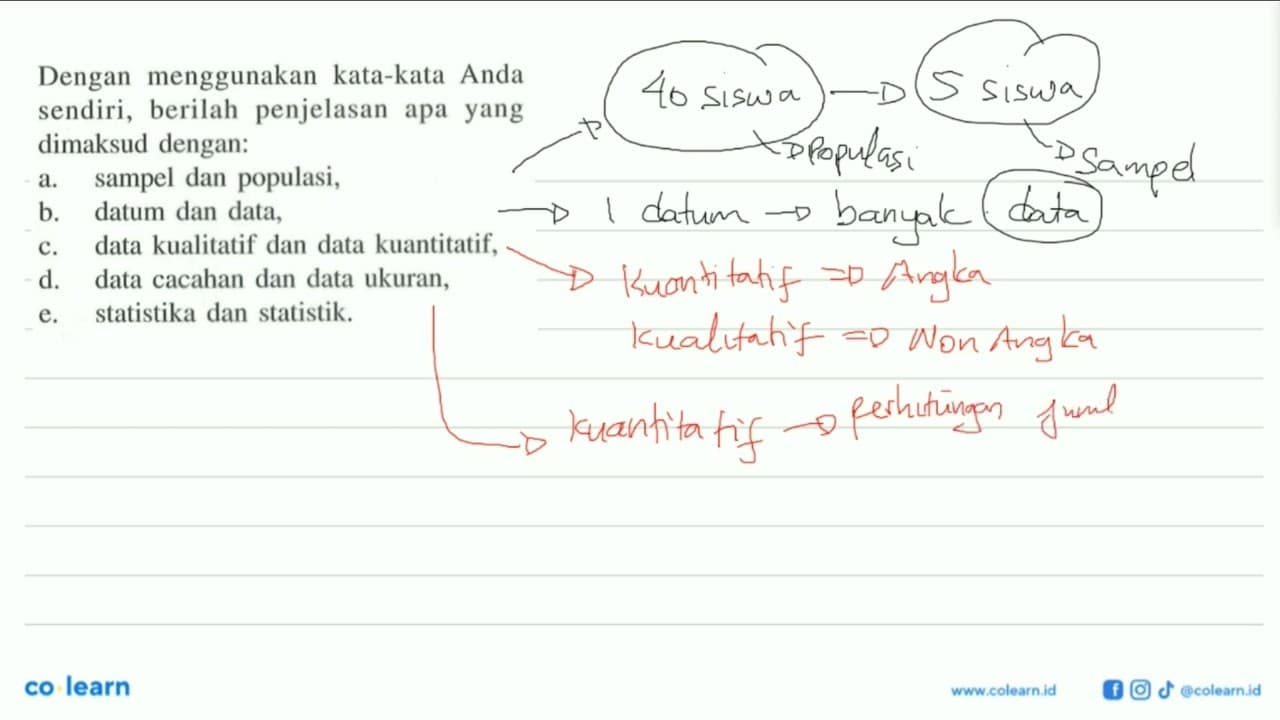 Dengan menggunakan kata-kata Anda
sendiri, berilah penjelasan apa yang
dimaksud dengan:
a. sampel dan populasi,
b. datum dan data,
c. data kualitatif dan data kuantitatif,
d. data cacahan dan data ukuran,
e. statistika dan statistik.
40 siswa 5 siswa
Populasi Sampel
1 datum banyak data
Kuantitatif Angka
Kualitatif Non Angka
Kuantitatif perhitungan
co learn
www.colearn.id @colearn.id